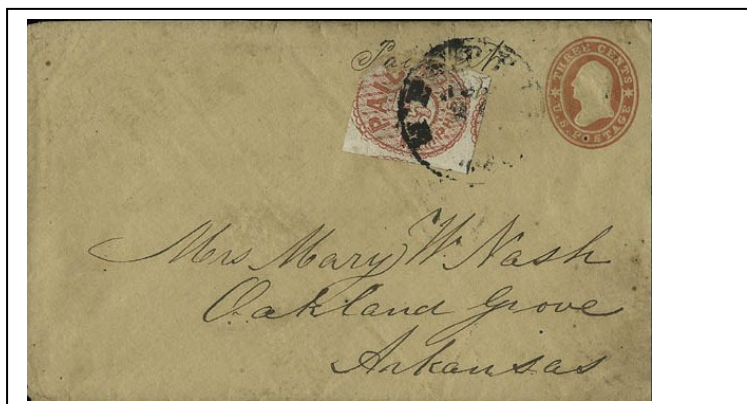 Paid
THREE CENTS
U.S. POSTAGE
PAID
5
Mrs Mary W. Nash
Oakland Grove
Arkansas